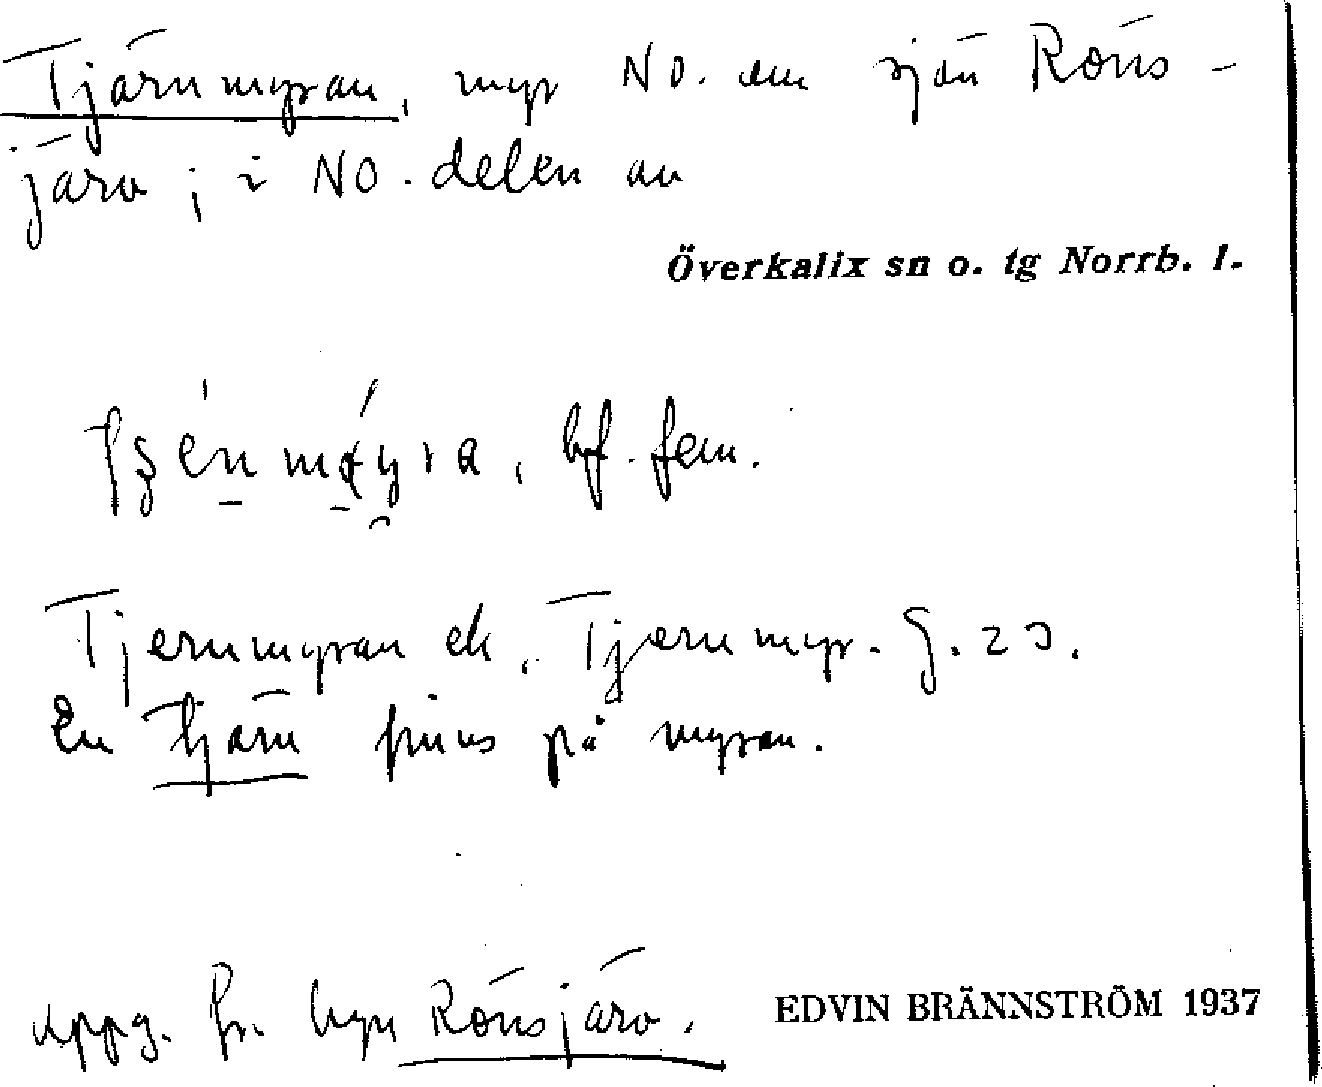 Tjärnmyran, myr NO. om sjön Röns-
järv; i NO. delen av
Överkalix sn o. tg Norrb. l.
bf. fem.
Tjernmyran ek. Tjernmyr. J. 23.
En tjärn finns på myran.
uppg. fr. byn Rönsjärv.
EDVIN BRÄNNSTRÖM 1937